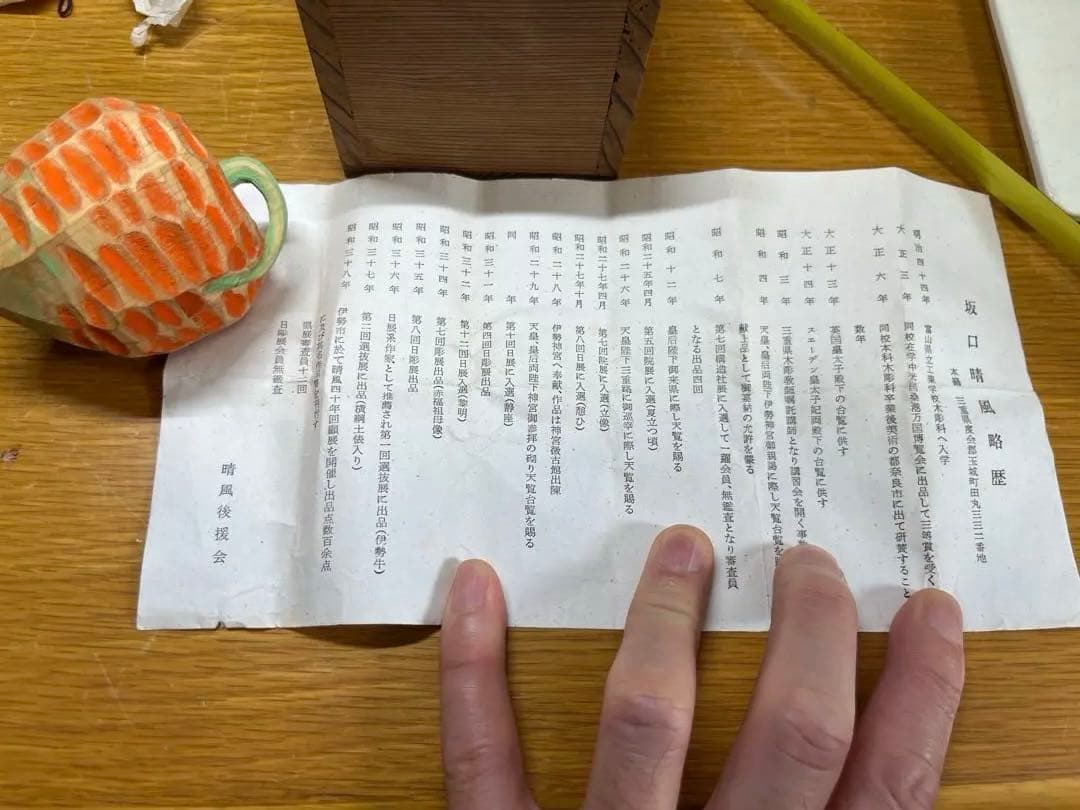 坂口晴風略歴
本籍 三重県度会郡玉城町田丸三三二番地
明治四十四年 富山県立工業学校木彫科へ入学
大正三年 同校在学中学校桑港万国博覧会に出品して三等賞を受く
大正六年 同校本科木彫科卒業後美術の都奈良市に出て研鑚すること
数年
大正十三年 英国皇太子殿下の台覧に供す
大正十四年 スエーデン皇太子妃両殿下の台覧に供す
昭和三年 三重県木彫教師嘱託講師となり講習会を開く事
昭和四年 天皇、皇后両陛下伊勢神宮御親謁に際し天覧台覧を
献上品として御嘉納の允許を蒙る
昭和七年 第七回構造社展に入選して一躍会員、無鑑査となり審査員
となる出品四回
昭和十二年 皇后陛下御来県に際し天覧を賜る
昭和二十五年四月 第五回院展に入選(夏立つ頃)
昭和二十六年 天皇陛下三重路に御巡幸に際し天覧を賜る
昭和二十七年四月 第七回院展に入選(立像)
昭和二十七年十月 第八回日展に入選(憩ひ)
昭和二十八年 伊勢神宮へ奉献、作品は神宮徴古館出陳
昭和二十九年 天皇、皇后両陛下神宮御参拝の砌り天覧台覧を賜る
同年 第十回日展に入選(静座)
昭和三十一年 第四回日彫展出品
昭和三十二年 第十二回日展入選(黎明)
昭和三十四年 第七回日彫展出品(赤福祖母像)
昭和三十五年 第八回日彫展出品
昭和三十六年 日展系作家として推薦され第一回選抜展に出品(伊勢牛)
昭和三十七年 第二回選抜展に出品(横綱土俵入り)
昭和三十八年 伊勢市に於て晴風四十年回顧展を開催し出品点数百余点
県展審査員十二回
日彫展会員無鑑査
晴風後援会